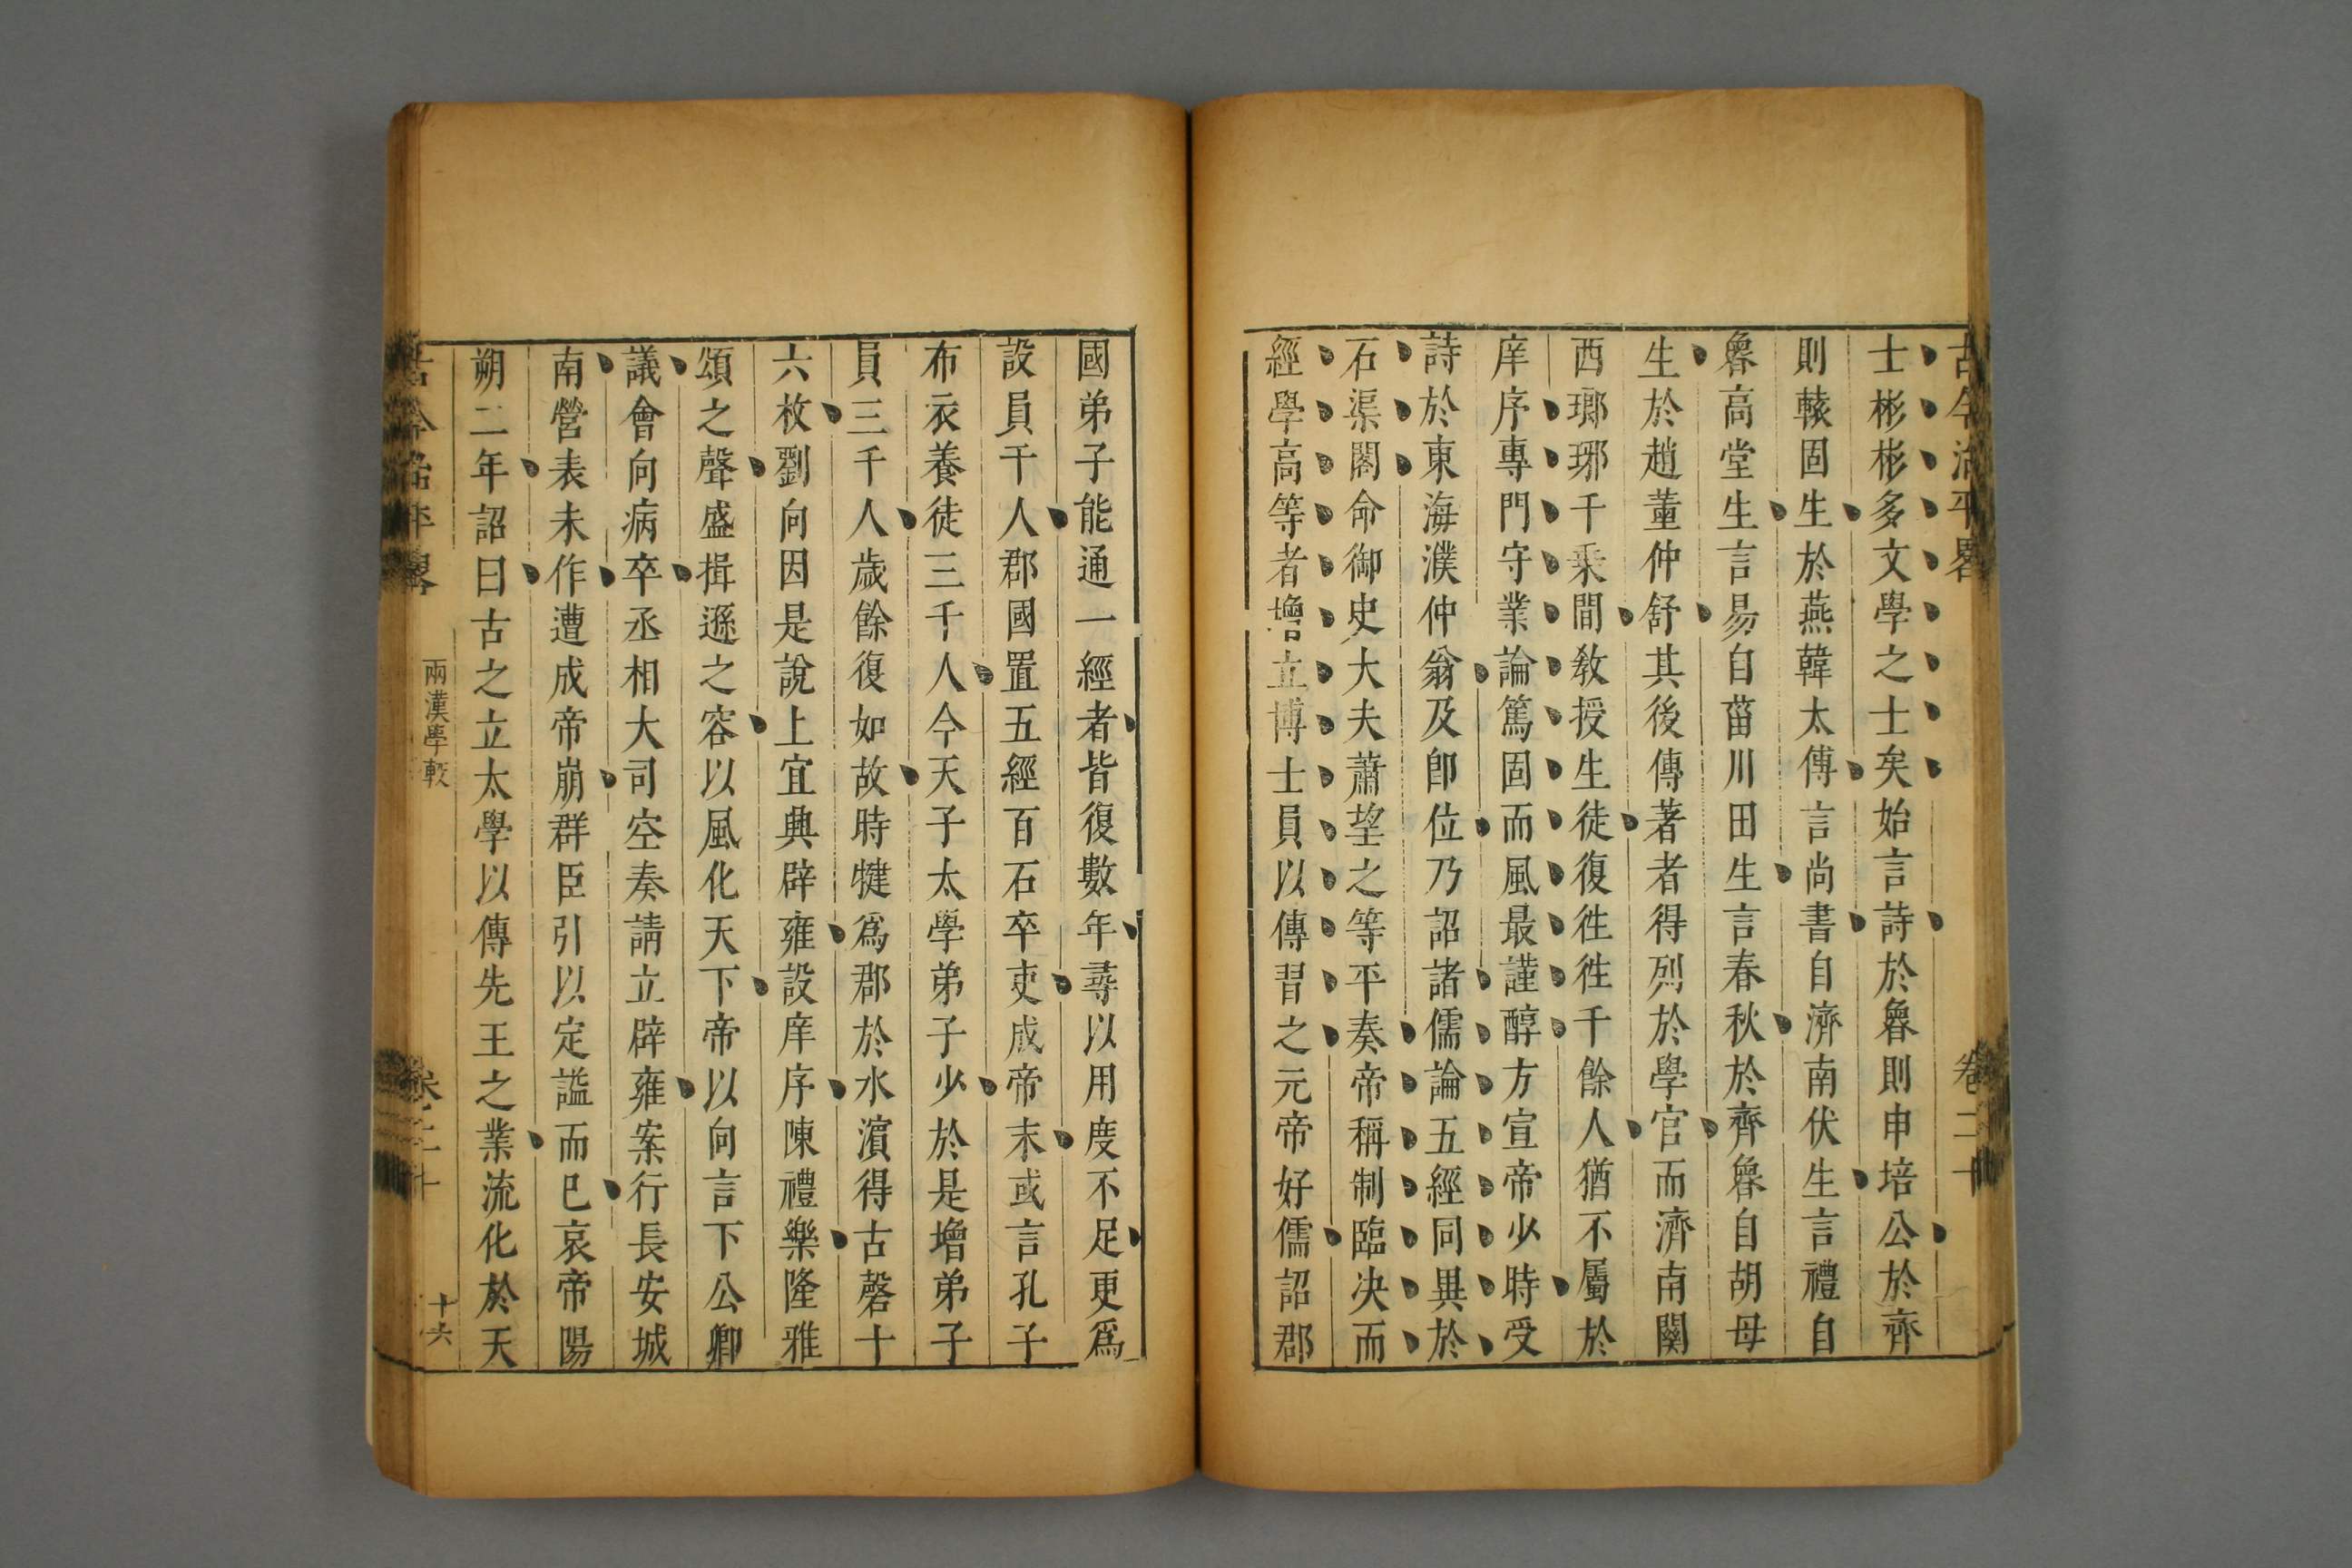 古今治平畧
卷二十
士彬彬多文學之士矣始言詩於魯則申培公於齊
則轅固生於燕韓太傅言尚書自濟南伏生言禮自
魯高堂生言易自菑川田生言春秋於齊魯自胡母
生於趙董仲舒其後傳著者得列於學官而濟南關
西瑯琊千乘間教授生徒復徃徃千餘人猶不屬於
庠序專門守業論篤固而風最謹醇方宣帝少時受
詩於東海濮仲翁及卽位乃詔諸儒論五經同異於
石渠閣命御史大夫蕭望之等平奏帝稱制臨决而
經學高等者增立博士員以傳習之元帝好儒詔郡
國弟子能通一經者皆復數年尋以用度不足更爲
設員千人郡國置五經百石卒吏成帝末或言孔子
布衣養徒三千人今天子太學弟子少於是增弟子
員三千人歲餘復如故時犍爲郡於水濵得古磬十
六枚劉向因是說上宜興辟雍設庠序陳禮樂隆雅
頌之聲盛揖遜之容以風化天下帝以向言下公卿
議會向病卒丞相大司空奏請立辟雍案行長安城
南營表未作遭成帝崩群臣引以定謚而已哀帝陽
朔二年詔曰古之立太學以傳先王之業流化於天
古今治平畧
兩漢學較
卷二十
十六